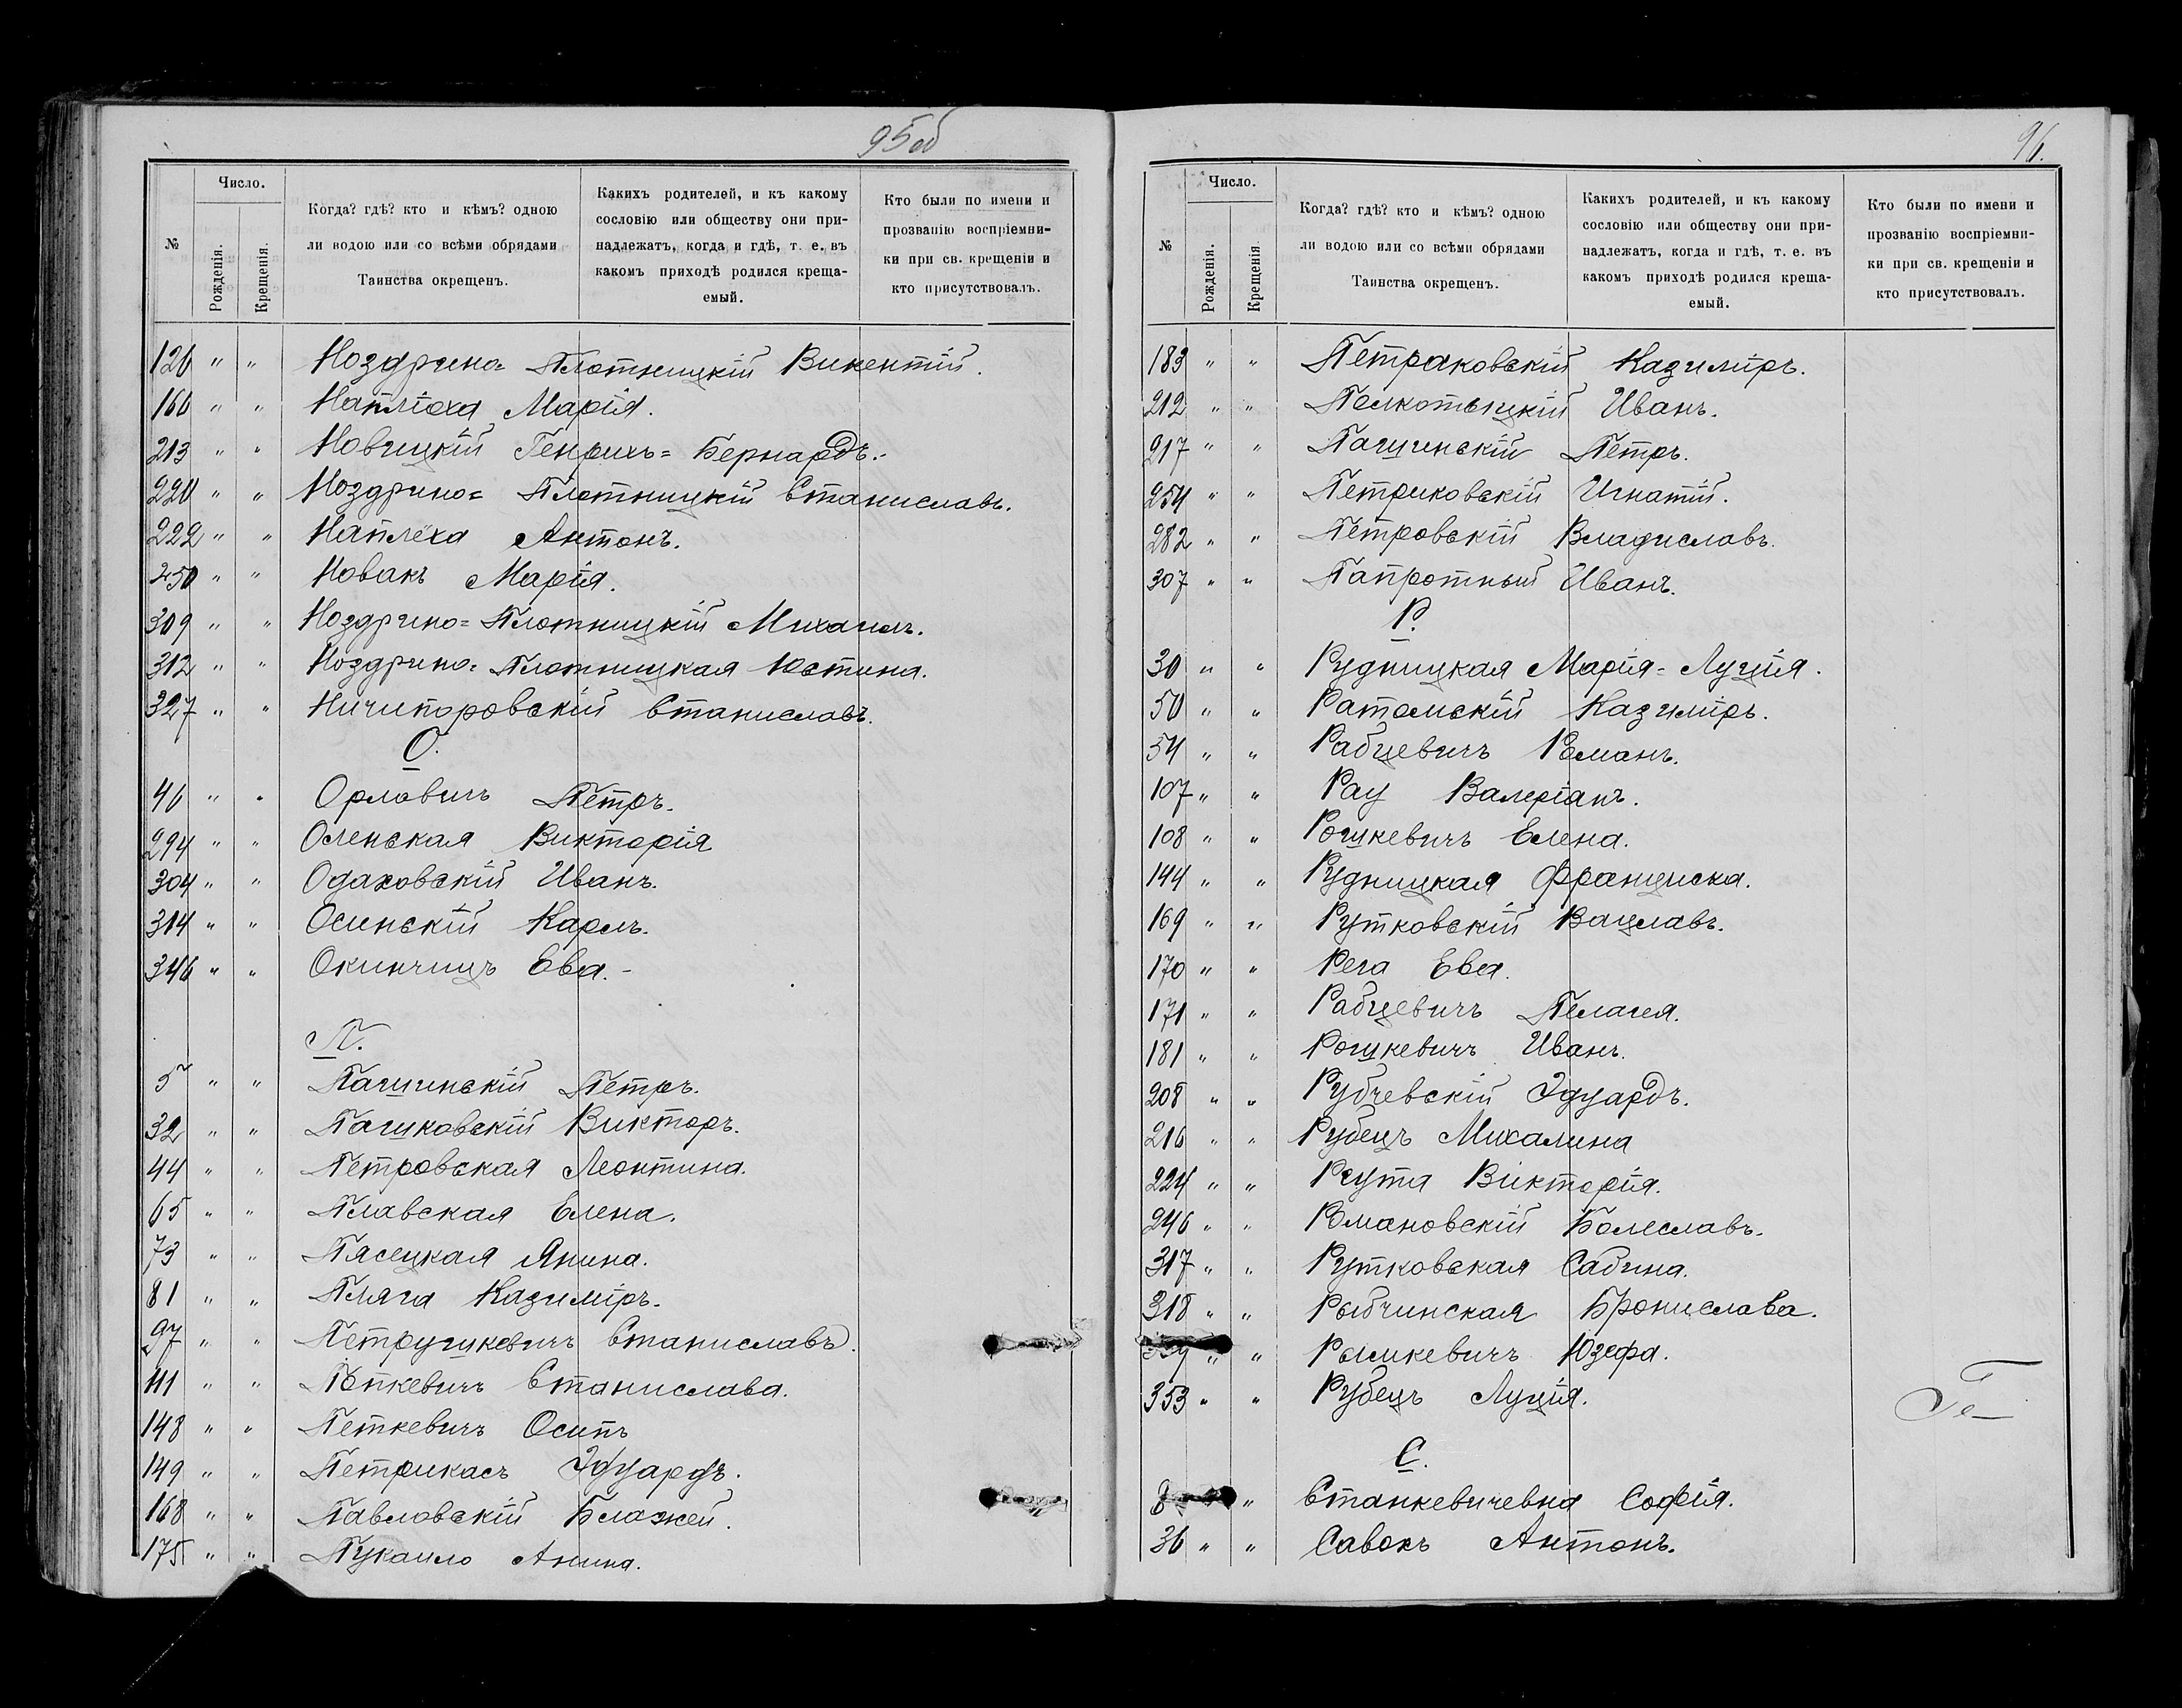 95 об
№
Число.
Рожденія.
Крещенія.
Когда? гдѣ? кто и кѣмъ? одною
ли водою или со всѣми обрядами
Таинства окрещенъ.
Какихъ родителей, и къ какому
сословію или обществу они при-
надлежатъ, когда и гдѣ, т. е. въ
какомъ приходѣ родился креща-
емый.
Кто были по имени и
прозванію воспріемни-
ки при св. крещеніи и
кто присутствовалъ.
126 " " Ноздрино= Плотницкій Викентій.
160 " " Наплюха Марія.
213 " " Новицкій Генрихъ= Бернардъ.
220 " " Ноздрино= Плотницкій Станиславъ.
222 " " Наплеха Антонъ.
250 " " Новакъ Марія.
309 " " Ноздрино= Плотницкій Михаилъ.
312 " " Ноздрино= Плотницкая Юстина.
327 " " Ничипоровскій Станиславъ.
О.
46 " " Орловичъ Петръ.
294 " " Оленская Викторія
304 " " Одаховскій Иванъ.
314 " " Осинскій Карлъ.
346 " " Окинчицъ Ева.
П.
5 " " Пашинскій Петръ.
32 " " Пашковскій Викторъ.
44 " " Петровская Леонтина.
65 " " Плавская Елена.
73 " " Пясецкая Янина.
81 " " Пляга Казиміръ.
97 " " Петрушкевичъ Станиславъ.
111 " " Попкевичъ Станислава.
148 " " Петкевичъ Осипъ
149 " " Петрикасъ Эдуардъ.
168 " " Павловскій Блажей.
175 " " Пукаило Анина.
96.
№
Число.
Рожденія.
Крещенія.
Когда? гдѣ? кто и кѣмъ? одною
ли водою или со всѣми обрядами
Таинства окрещенъ.
Какихъ родителей, и къ какому
сословію или обществу они при-
надлежатъ, когда и гдѣ, т. е. въ
какомъ приходѣ родился креща-
емый.
Кто были по имени и
прозванію воспріемни-
ки при св. крещеніи и
кто присутствовалъ.
183 " " Петраковскій Казиміръ.
212 " " Иванъ.
217 " " Пашинскій Петръ.
254 " " Петриковскій Игнатій.
282 " " Петровскій Владиславъ.
307 " " Папротный Иванъ.
Р.
30 " " Рудницкая Марія= Луція.
50 " " Ратомскій Казиміръ.
54 " " Рабцевичъ Романъ.
107 " " Рау Валеріанъ.
108 " " Рошкевичъ Елена.
144 " " Рудницкая Франциска.
169 " " Рутковскій Вацлавъ.
170 " " Рега Ева.
171 " " Рабцевичъ Пелагея.
181 " " Рошкевичъ Иванъ.
208 " " Рубчевскій Эдуардъ.
216 " " Рубецъ Михалина
224 " " Реута Викторія.
246 " " Романовскій Болеславъ.
317 " " Рутковская Сабина.
318 " " Рыбчинская Бронислава.
" " Рымкевичъ Юзефа.
353 " " Рубецъ Луція.
С.
8 " Станкевичевна Софія.
36 " " Савокъ Антонъ.